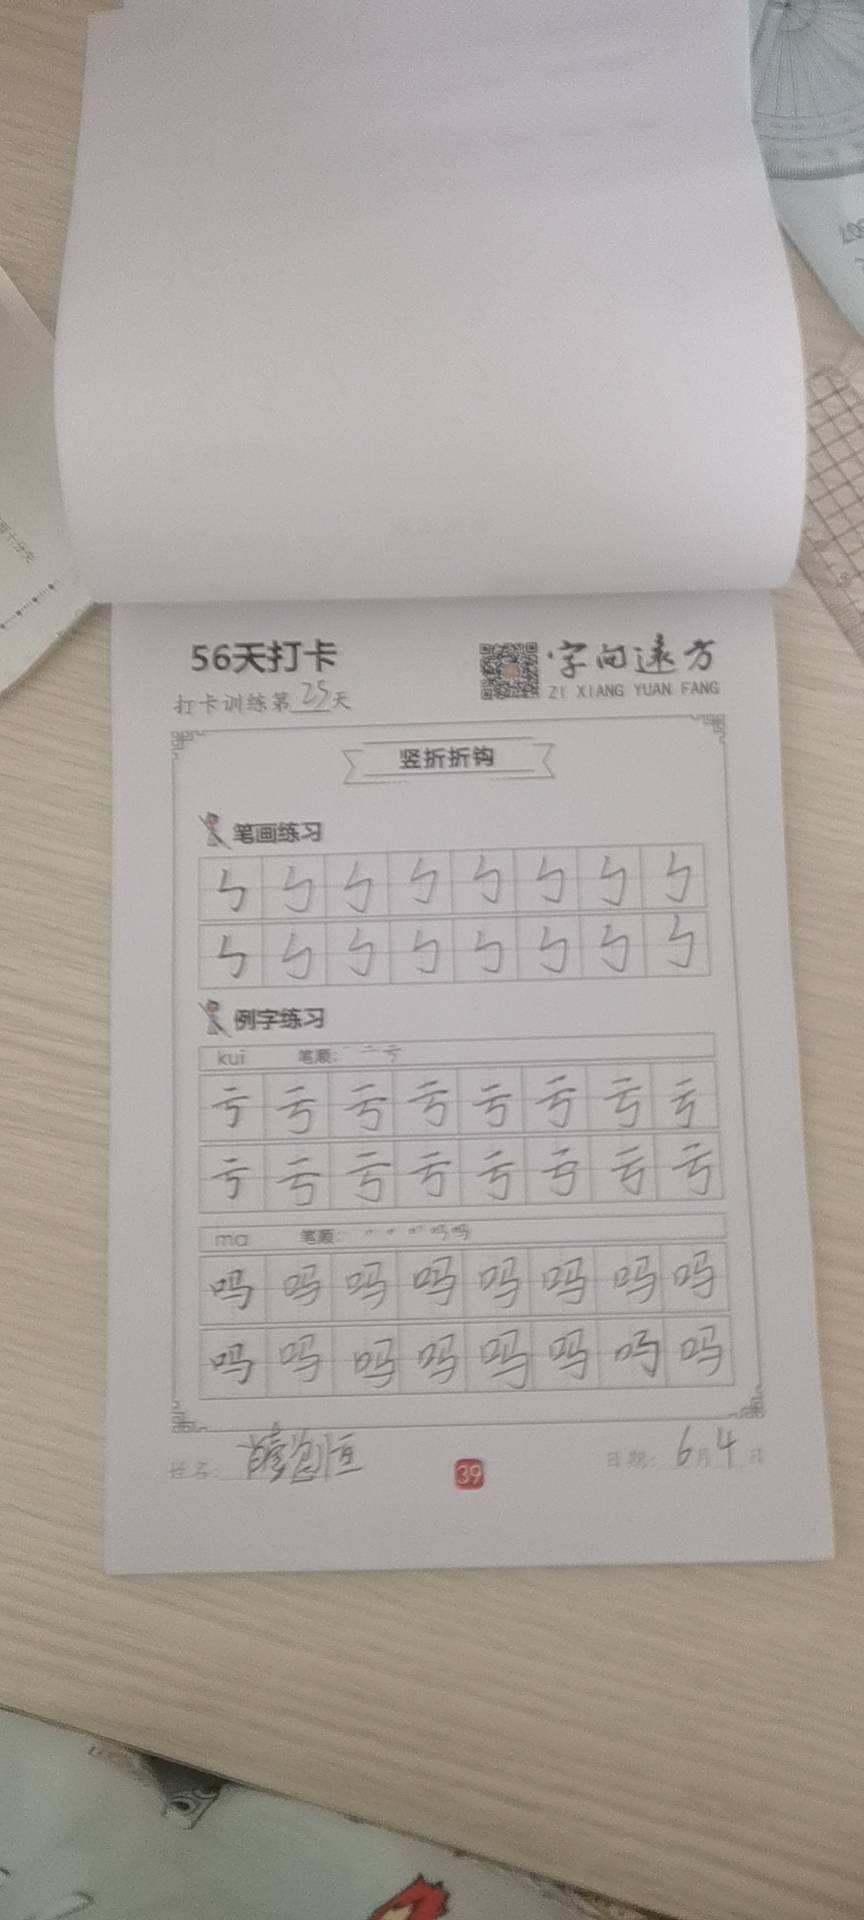 56天打卡
字向远方
ZI XIANG YUAN FANG
打卡训练第25天
竖折折钩
笔画练习
ㄣ ㄣ ㄣ ㄣ ㄣ ㄣ ㄣ ㄣ
ㄣ ㄣ ㄣ ㄣ ㄣ ㄣ ㄣ ㄣ
例字练习
kuī 笔顺: 一 二 亏
亏 亏 亏 亏 亏 亏 亏 亏
亏 亏 亏 亏 亏 亏 亏 亏
ma 笔顺:
吗 吗 吗 吗 吗 吗 吗 吗
吗 吗 吗 吗 吗 吗 吗 吗
姓名:
39
日期: 6月4日